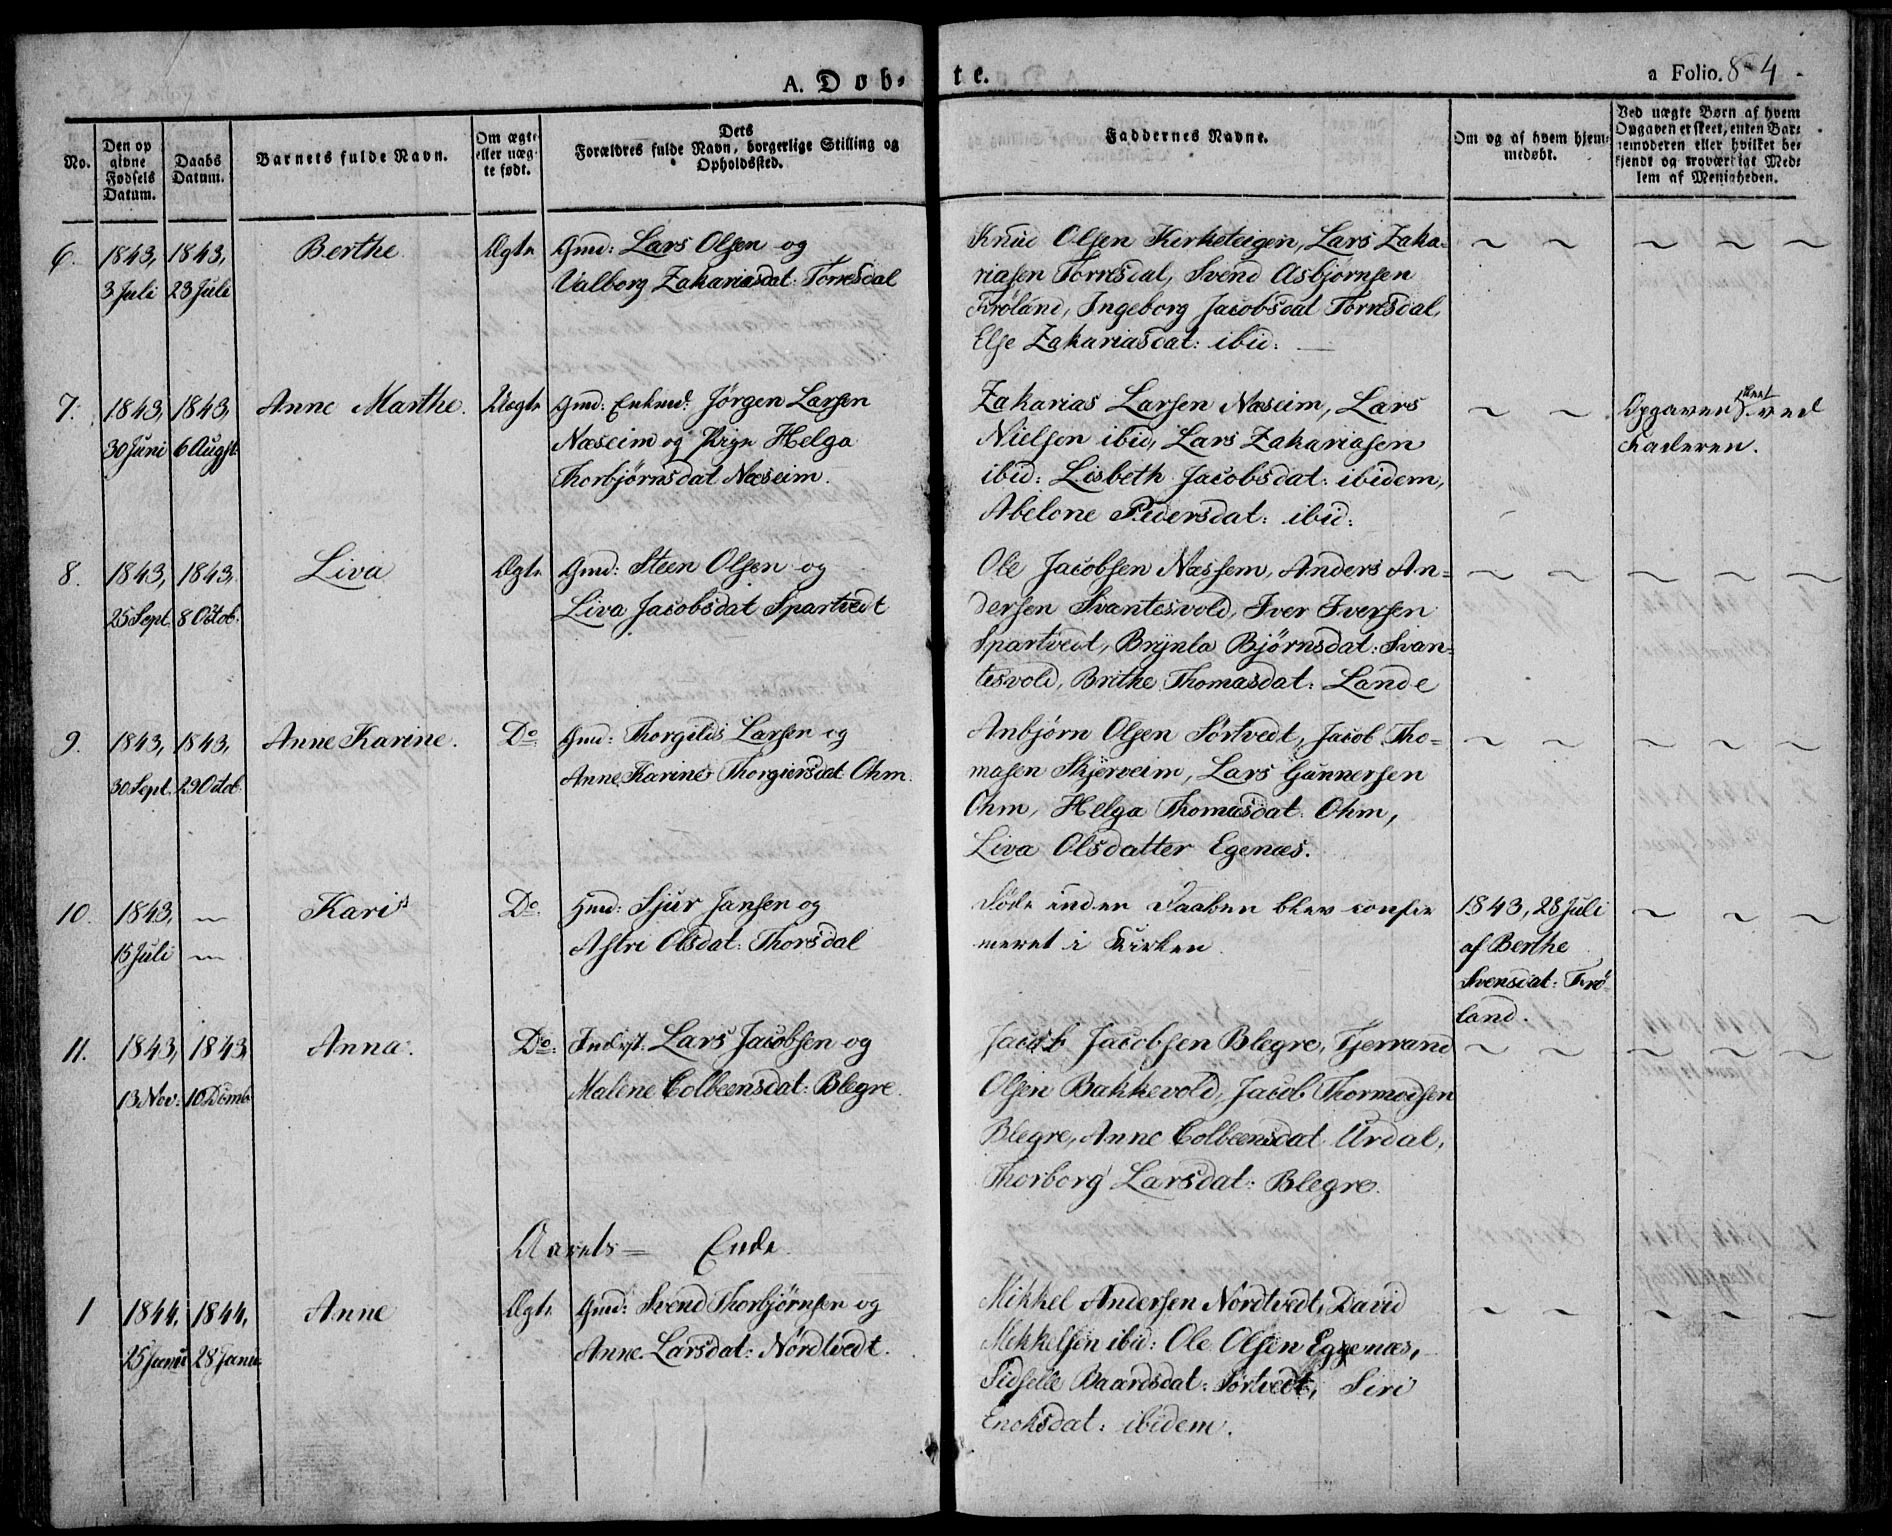 A. Döb- te. a Folio. 84.
No.
Den op givne Fødsels Datum.
Daabs Datum.
Barnets fulde Navn.
Om ægte eller uægte født.
Dets Forældres fulde Navn, borgerlige Stilling og Opholdssted.
Faddernes Navne.
Om og af hvem hjemmedøbt.
Ved uægte Børn af hvem Opgaven er skeet, enten Barnemoderen eller hvilket bekjendt og troværdigt Medlem af Menigheden.
6. 1843, 3 Juli
1843, 23 Juli
Berthe.
Ægte
Gmd: Lars Olsen og
Valborg Zakariasdat: Torresdal
Knud Olsen Kirketeigen, Lars Zaka-
riasen Torresdal, Svend Asbjørnsen
Frøland, Ingeborg Jacobsdat Torresdal,
Else Zakariasdat: ibid: —
~ ~ ~ ~ ~
7. 1843, 30 Juni
1843, 6 Augst:
Anne Marthe.
Uægte
Gmd: Enkmd: Jørgen Larsen
Næseim og Pige Helga
Thorbjørnsdat Næseim.
Zakarias Larsen Næseim, Lars
Nielsen ibid, Lars Zakariasen
ibid: Lisbeth Jacobsdat: ibidem,
Abelone Pedersdat: ibid:
~ ~
Opgaven skeet ved
Faderen.
8. 1843, 25 Sept.
1843, 8 Octob.
Liva
Ægte
Gmd: Steen Olsen og
Liva Jacobsdat Spartvedt
Ole Jacobsen Næssem, Anders An-
dersen Svantesvold, Iver Iversen
Spartvedt, Brynla Bjørnsdat: Svan-
tesvold, Brithe Thomasdat: Lande
~ ~ ~ ~ ~
9. 1843, 30 Sept.
1843, 29 Octob.
Anne Karine.
Do
Gmd: Thorgilds Larsen og
Anne Karine Thorgiersdat Ohm.
Anbjørn Olsen Sørtvedt, Jacob Tho-
masen Skjerveim, Lars Gunnersen
Ohm, Helga Thomasdat: Ohm,
Liva Olsdatter Egenæs.
~ ~ ~ ~ ~
10. 1843, 15 Juli
— —
Kari
Do
Gmd: Sjur Jansen og
Astri Olsdat: Thorsdal
Døde inden Daaben blev confir
meret i Kirken.
1843, 28 Juli
af Berthe
Svensdat: Frö-
land.
~ ~ ~
11. 1843, 13 Nov:
1843, 10 Dcmb
Anna.
Do
Inderst. Lars Jacobsen og
Malene Colbeensdat: Blegre.
Jacob Jacobsen Blegre, Tjerrand
Olsen Bakkevold, Jacob Thormodsen
Blegre, Anne Colbeensdat Urdal,
Thorborg Larsdat: Blegre.
~ ~ ~ ~ ~
Aarets — Ende.
1 1844, 25 Janu
1844, 28 Janu.
Anne
Ægte
Gmd: Svend Thorbjørnsen og
Anne Larsdat: Nordtvedt.
Mikkel Andersen Nordtvedt, David
Mikkelsen ibid: Ole Olsen Eggenæs,
Sidselle Baardsdat: Sørtvedt, Siri
Enoksdat: ibidem.
~ ~ ~ ~ ~